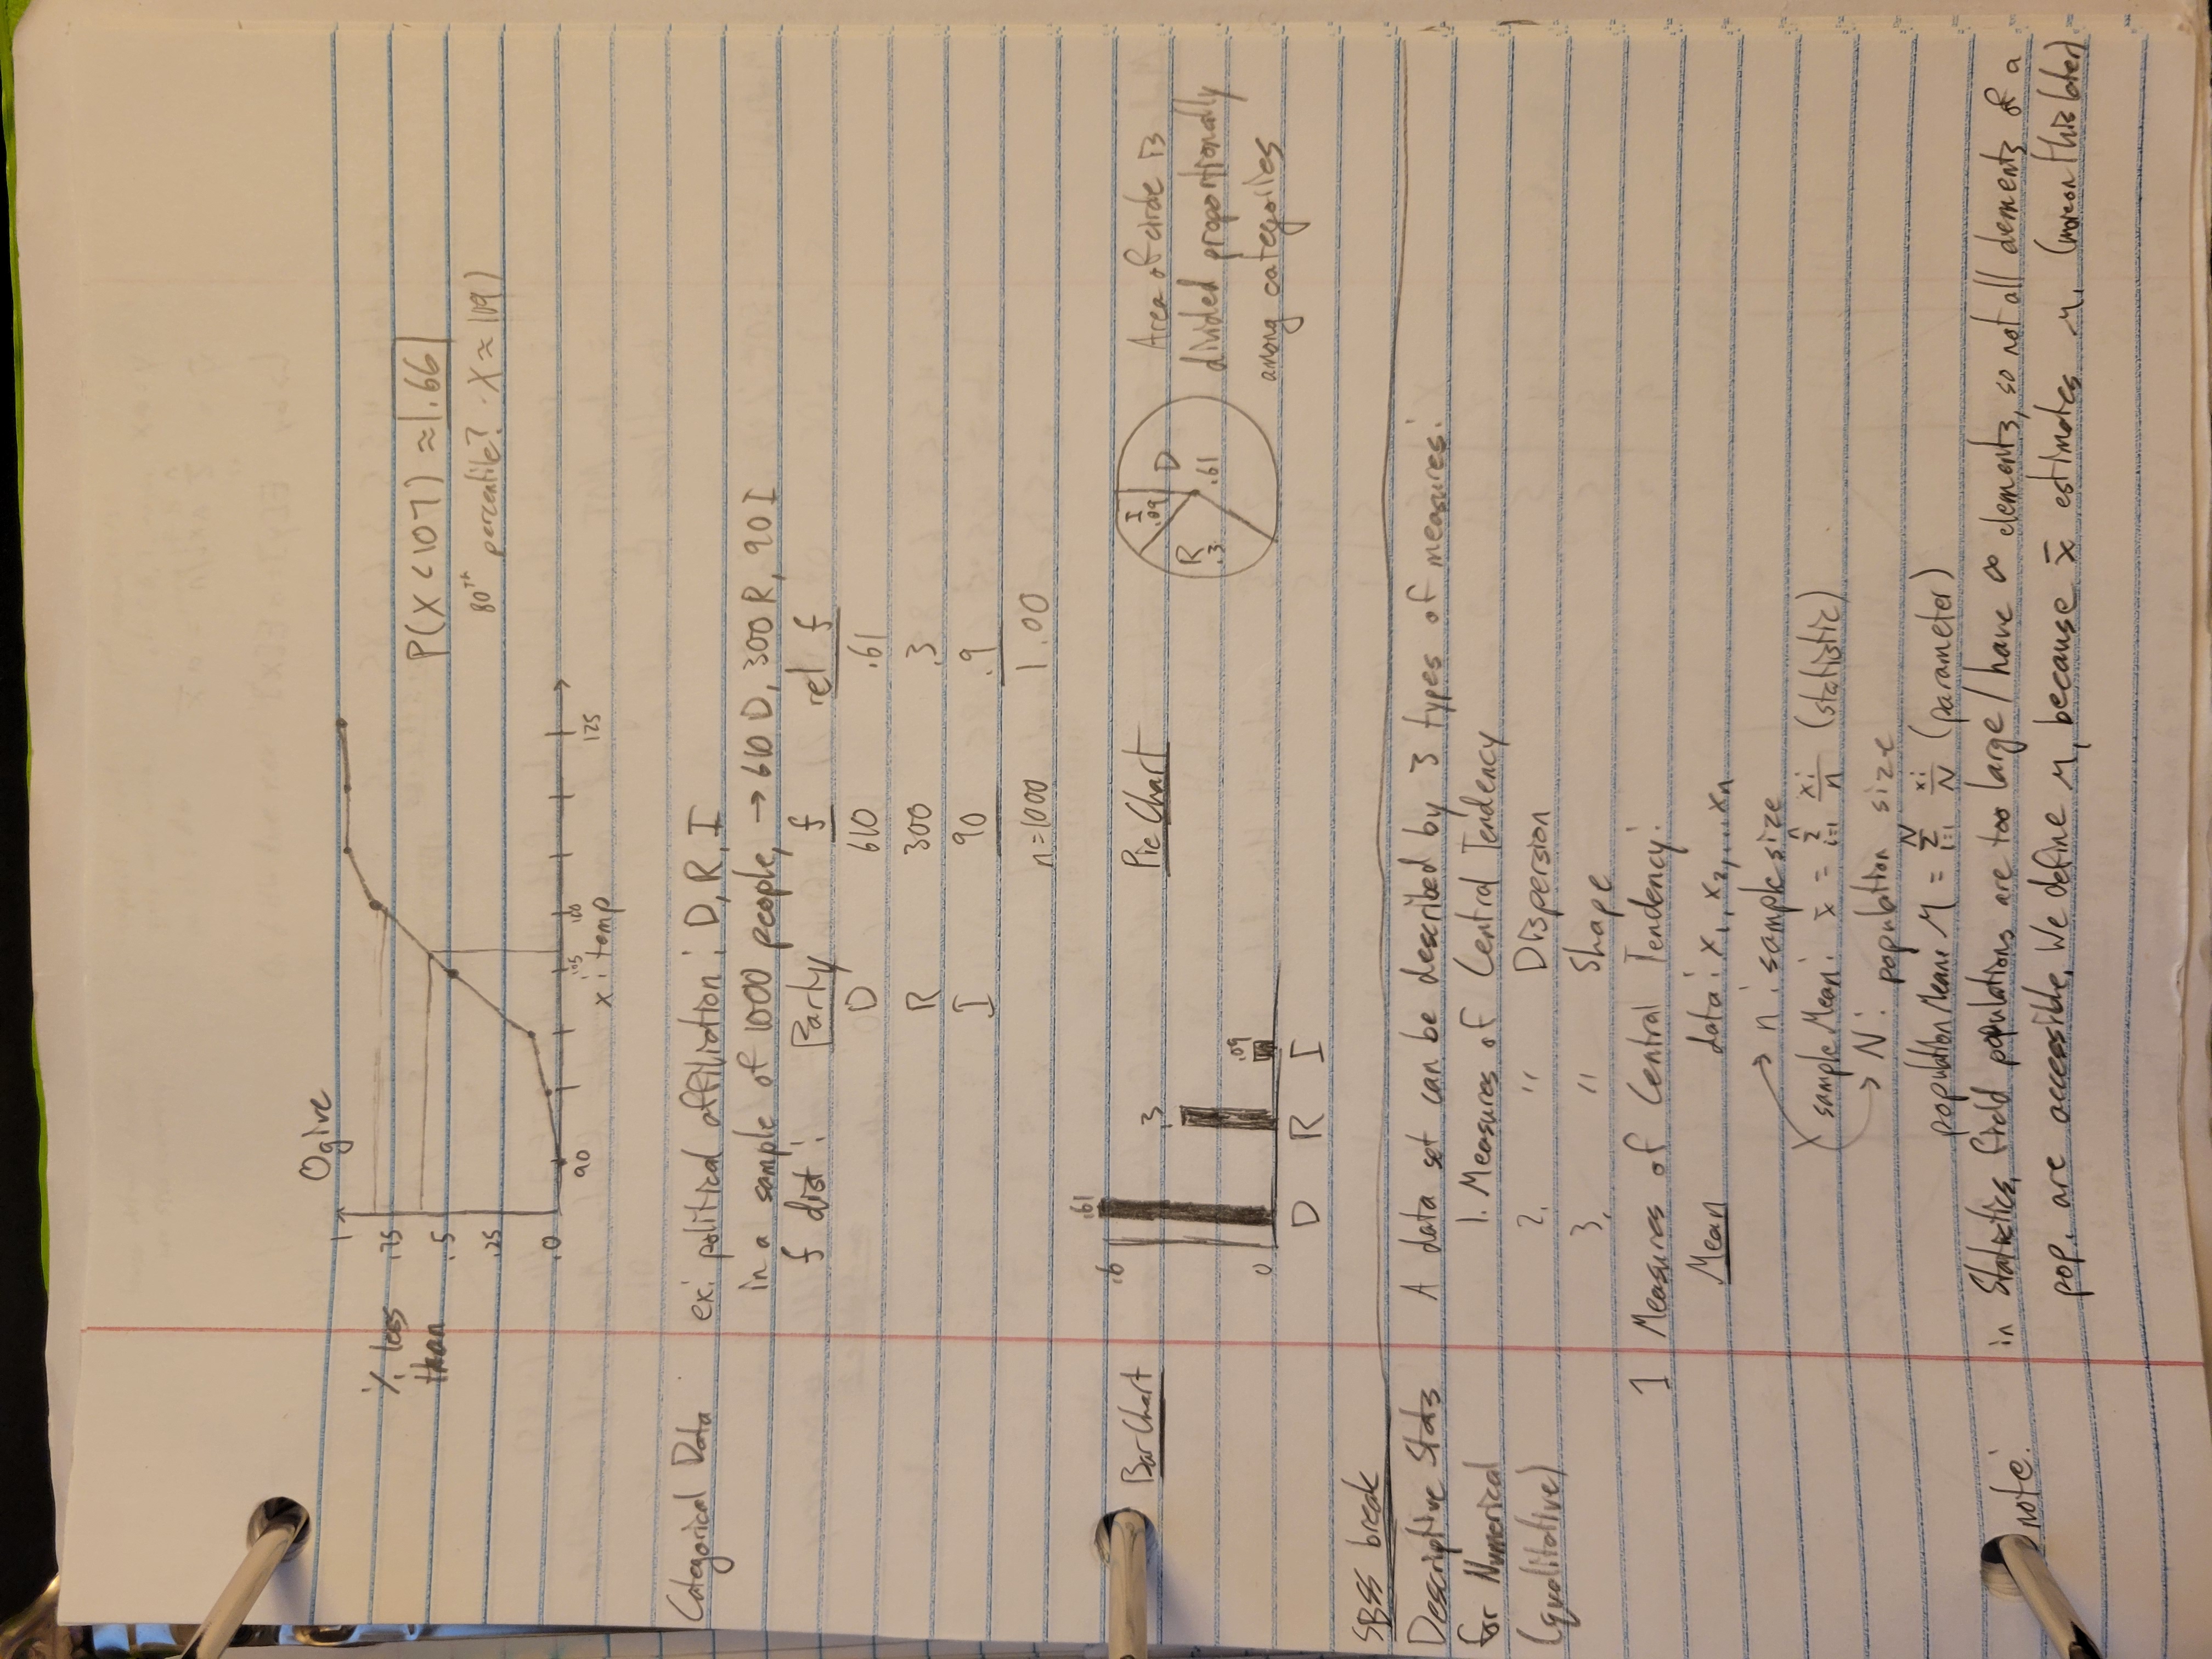 Ogive
1
% less
than
.75
.5
.25
.0
90
105
125
x: temp
P(X<107) ≈ .66
80TH percentile? X ≈ 109
Categorical Data
ex: political affiliation: D, R, I
in a sample of 1000 people, → 610 D, 300 R, 90 I
f dist: Party f rel f
D 610 .61
R 300 .3
I 90 .9
n=1000 1.00
Bar Chart
.6
0
.61
.3
.09
D R I
Pie Chart
I .09
D .61
R .3
Area of circle is
divided proportionally
among categories
break
Descriptive Stats
for Numerical
(qualitative)
A data set can be described by 3 types of measures:
1. Measures of Central Tendency
2. " Dispersion
3. " Shape
1 Measures of Central Tendency:
Mean data: x₁, x₂,...xₙ
→ n: sample size
sample Mean: x̄ = Σⁿᵢ₌₁ xi/n (statistic)
→ N: population size
population Mean: μ = Σᴺᵢ₌₁ xi/N (parameter)
note: in Statistics, field populations are too large / have ∞ elements, so not all elements of a
pop. are accessible. We define μ, because x̄ estimates μ. (more on this later)